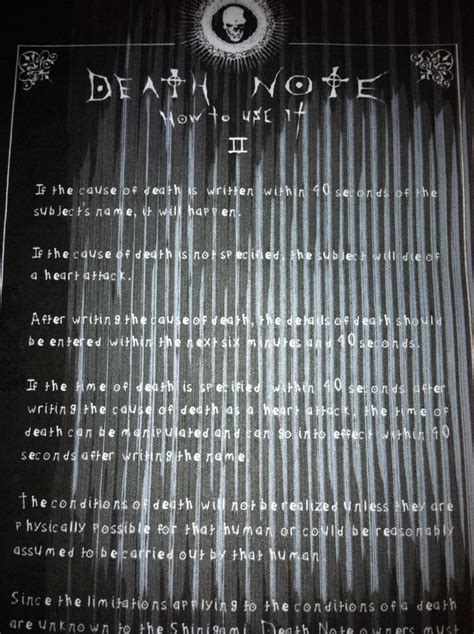 DEATH NOTE
HOW TO USE IT
II
If the cause of death is written within 40 seconds of the
subject's name, it will happen.
If the cause of death is not specified, the subject will die of
a heart attack.
After writing the cause of death, the details of death should
be entered within the next six minutes and 40 seconds.
If the time of death is specified within 40 seconds after
writing the cause of death as a heart attack, the time of
death can be manipulated and can go into effect within 40
seconds after writing the name.
The conditions of death will not be realized unless they are
physically possible for that human or could be reasonably
assumed to be carried out by that human.
Since the limitations applying to the conditions of a death
are unknown to the Shinigami, Death Note owners must